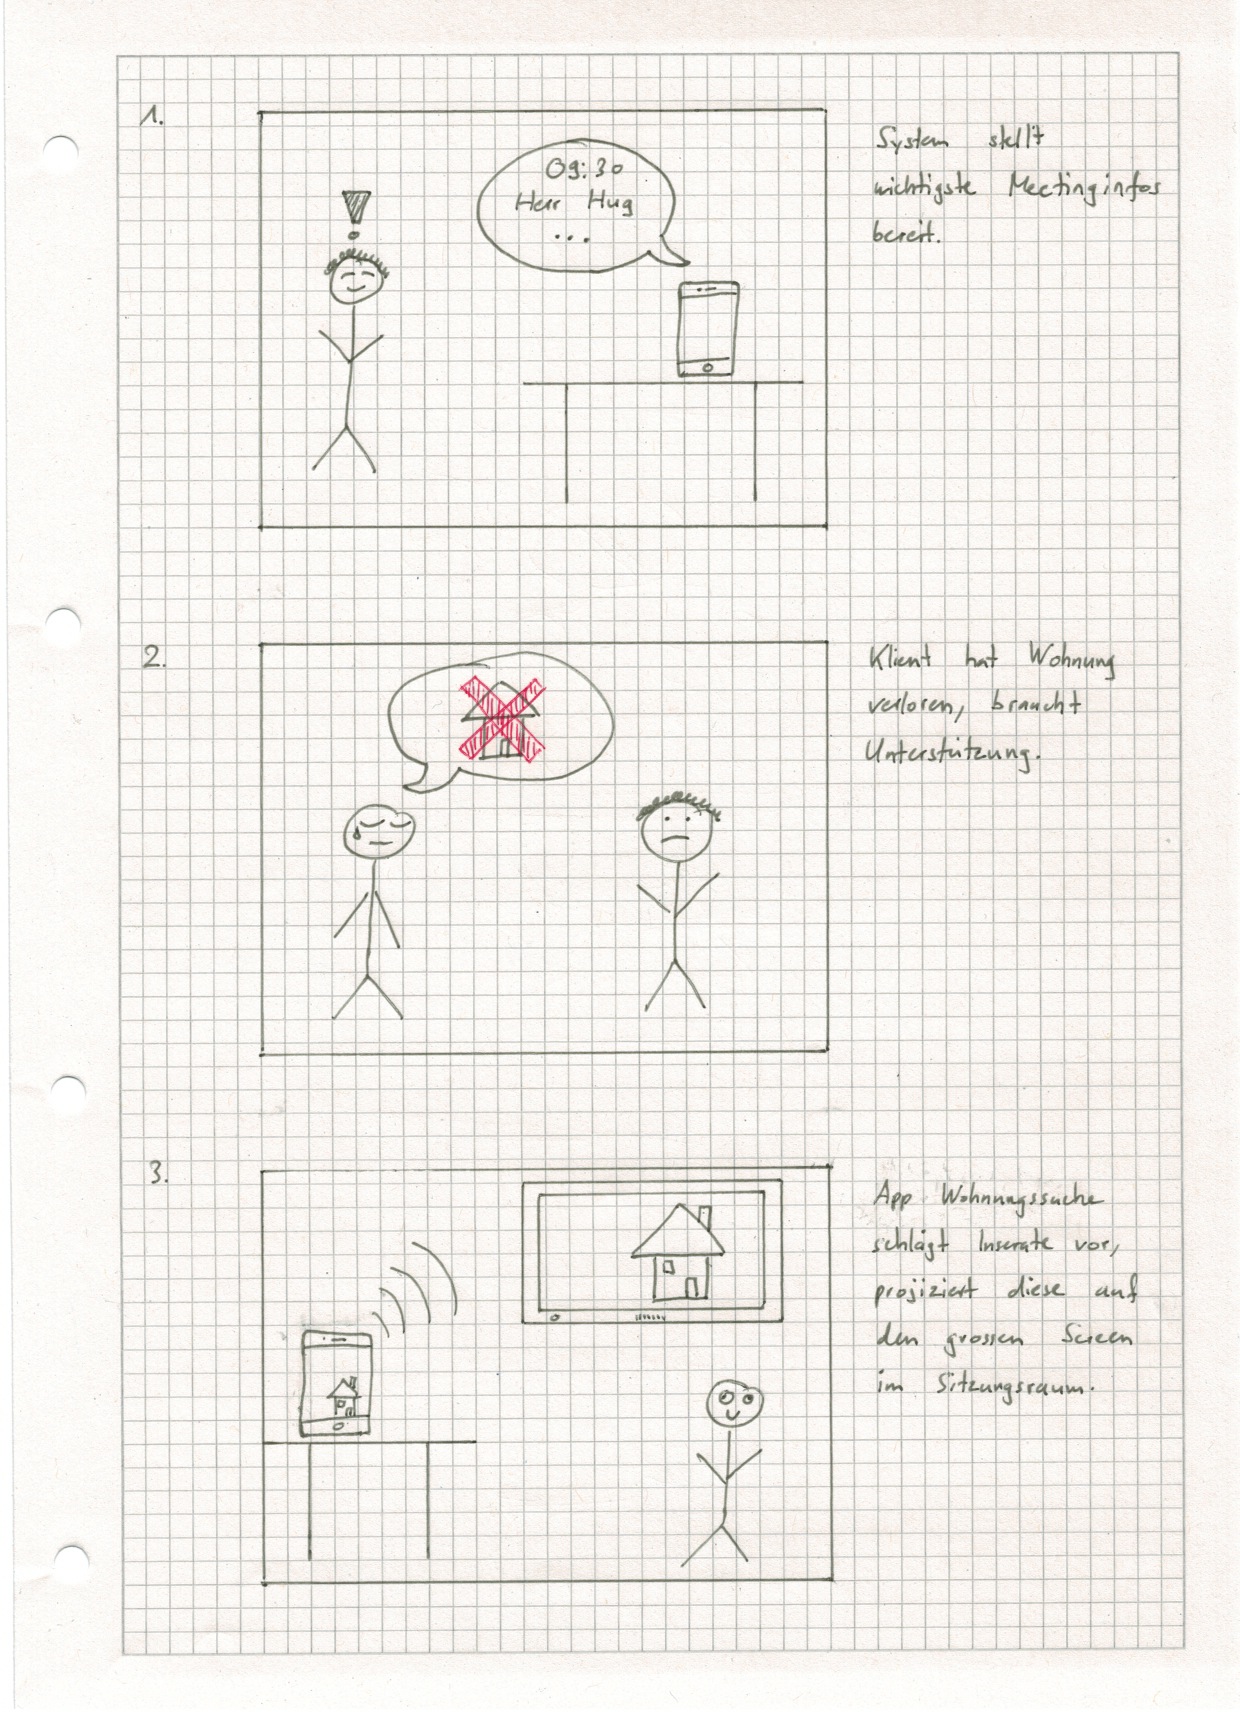 1.
09:30
Herr Hug
...
System stellt
wichtigste Meetinginfos
bereit.
2.
Klient hat Wohnung
verloren, braucht
Unterstützung.
3.
App Wohnungssuche
schlägt Inserate vor,
projiziert diese auf
den grossen Screen
im Sitzungsraum.